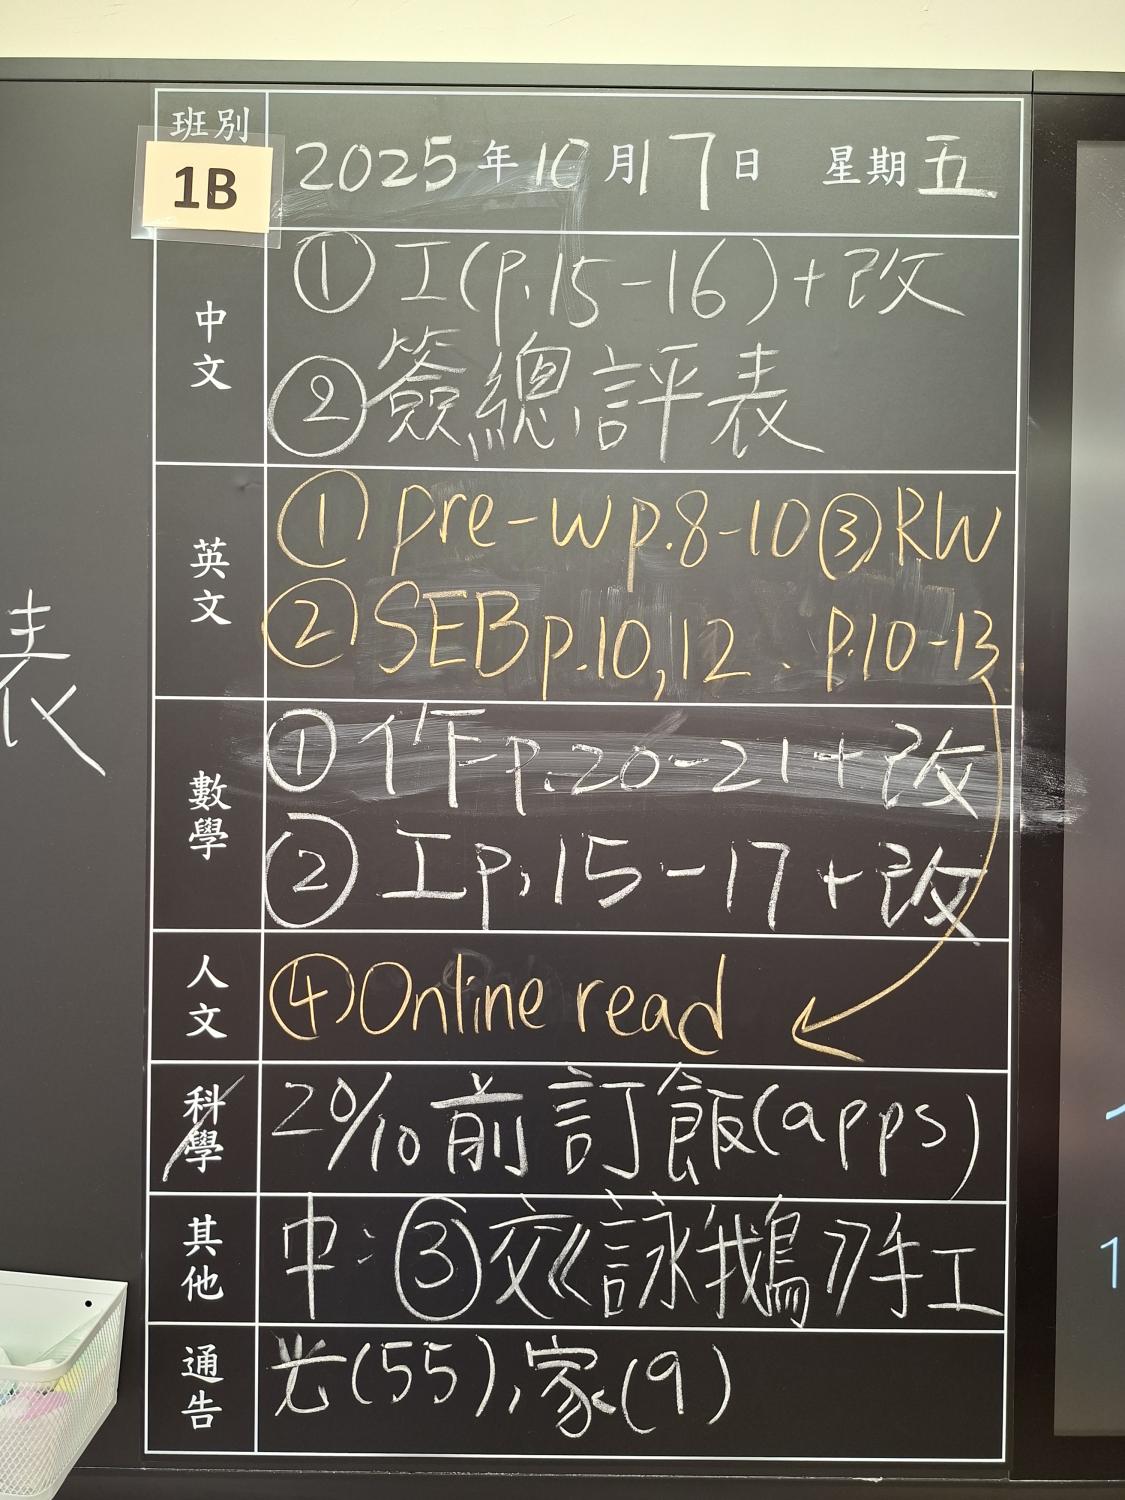 班別
1B
2025年10月17日 星期五
中文
①工(p.15-16)+改
②簽總評表
英文
①pre-w p.8-10 ③RW
②SEB p.10,12. p.10-13
數學
①作p.20-21+改
②工p.15-17+改
人文
④Online read
科學
20/10前訂飯(apps)
其他
中:③交《詠鵝》手工
通告
光(55),家(9)
表
1